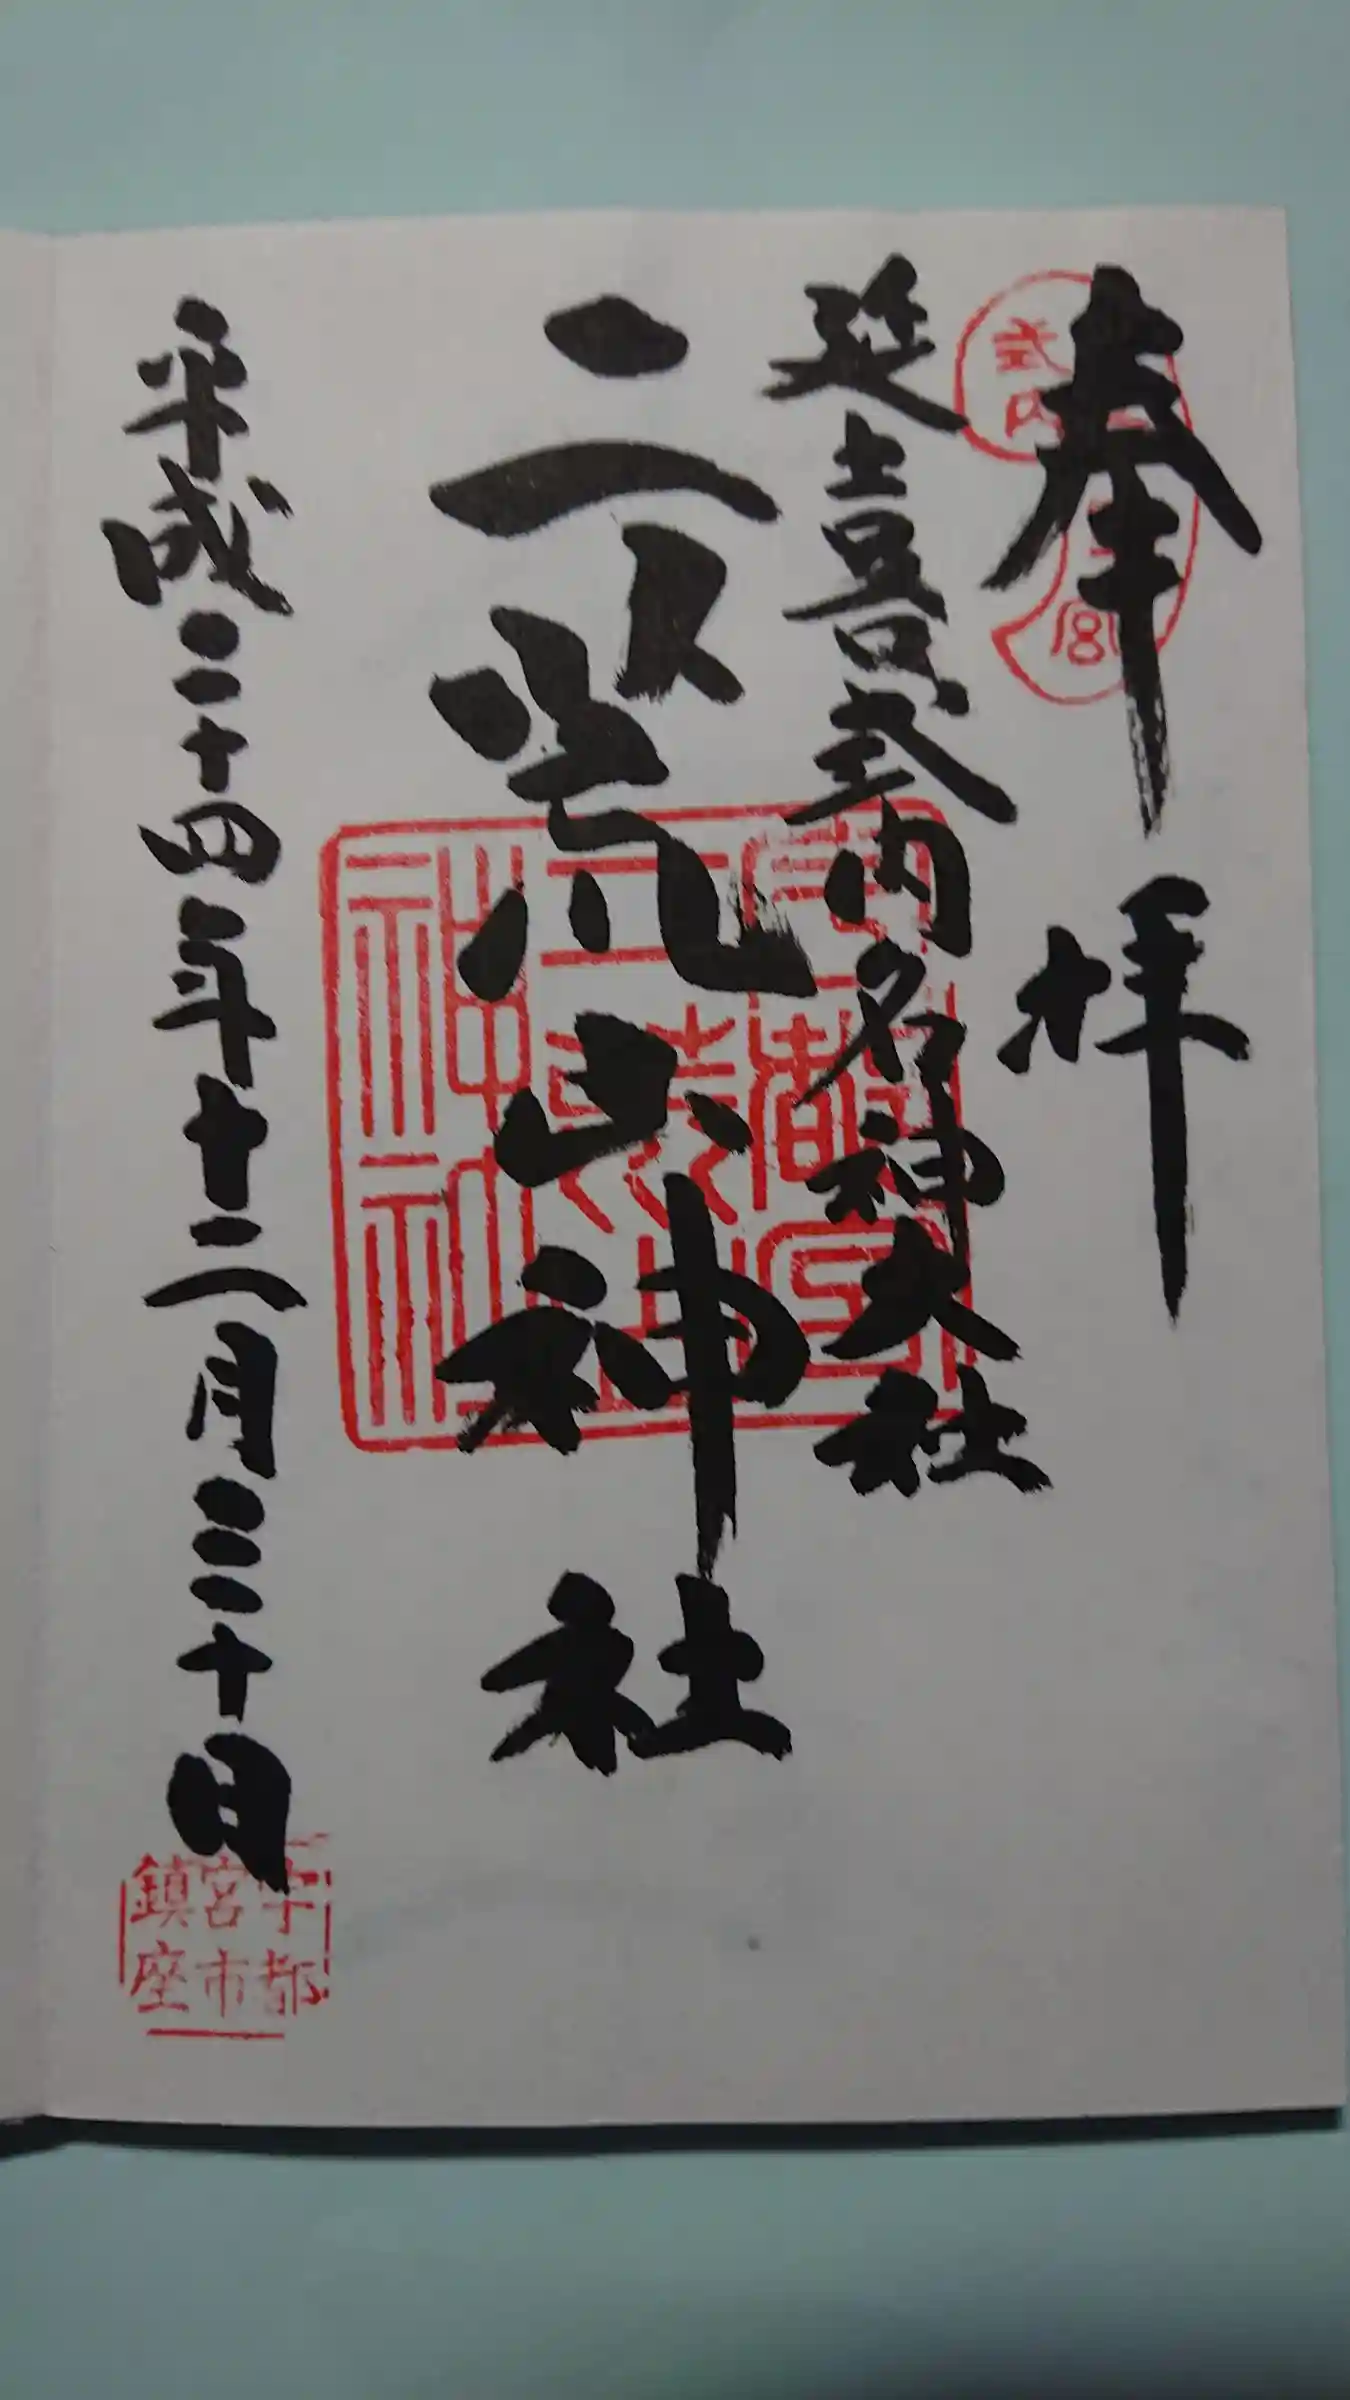 奉拝
延喜式内名神大社
二荒山神社
平成二十四年十二月三十日
式内
宮
宇都宮
二荒山
神社
宇都
宮市
鎮座